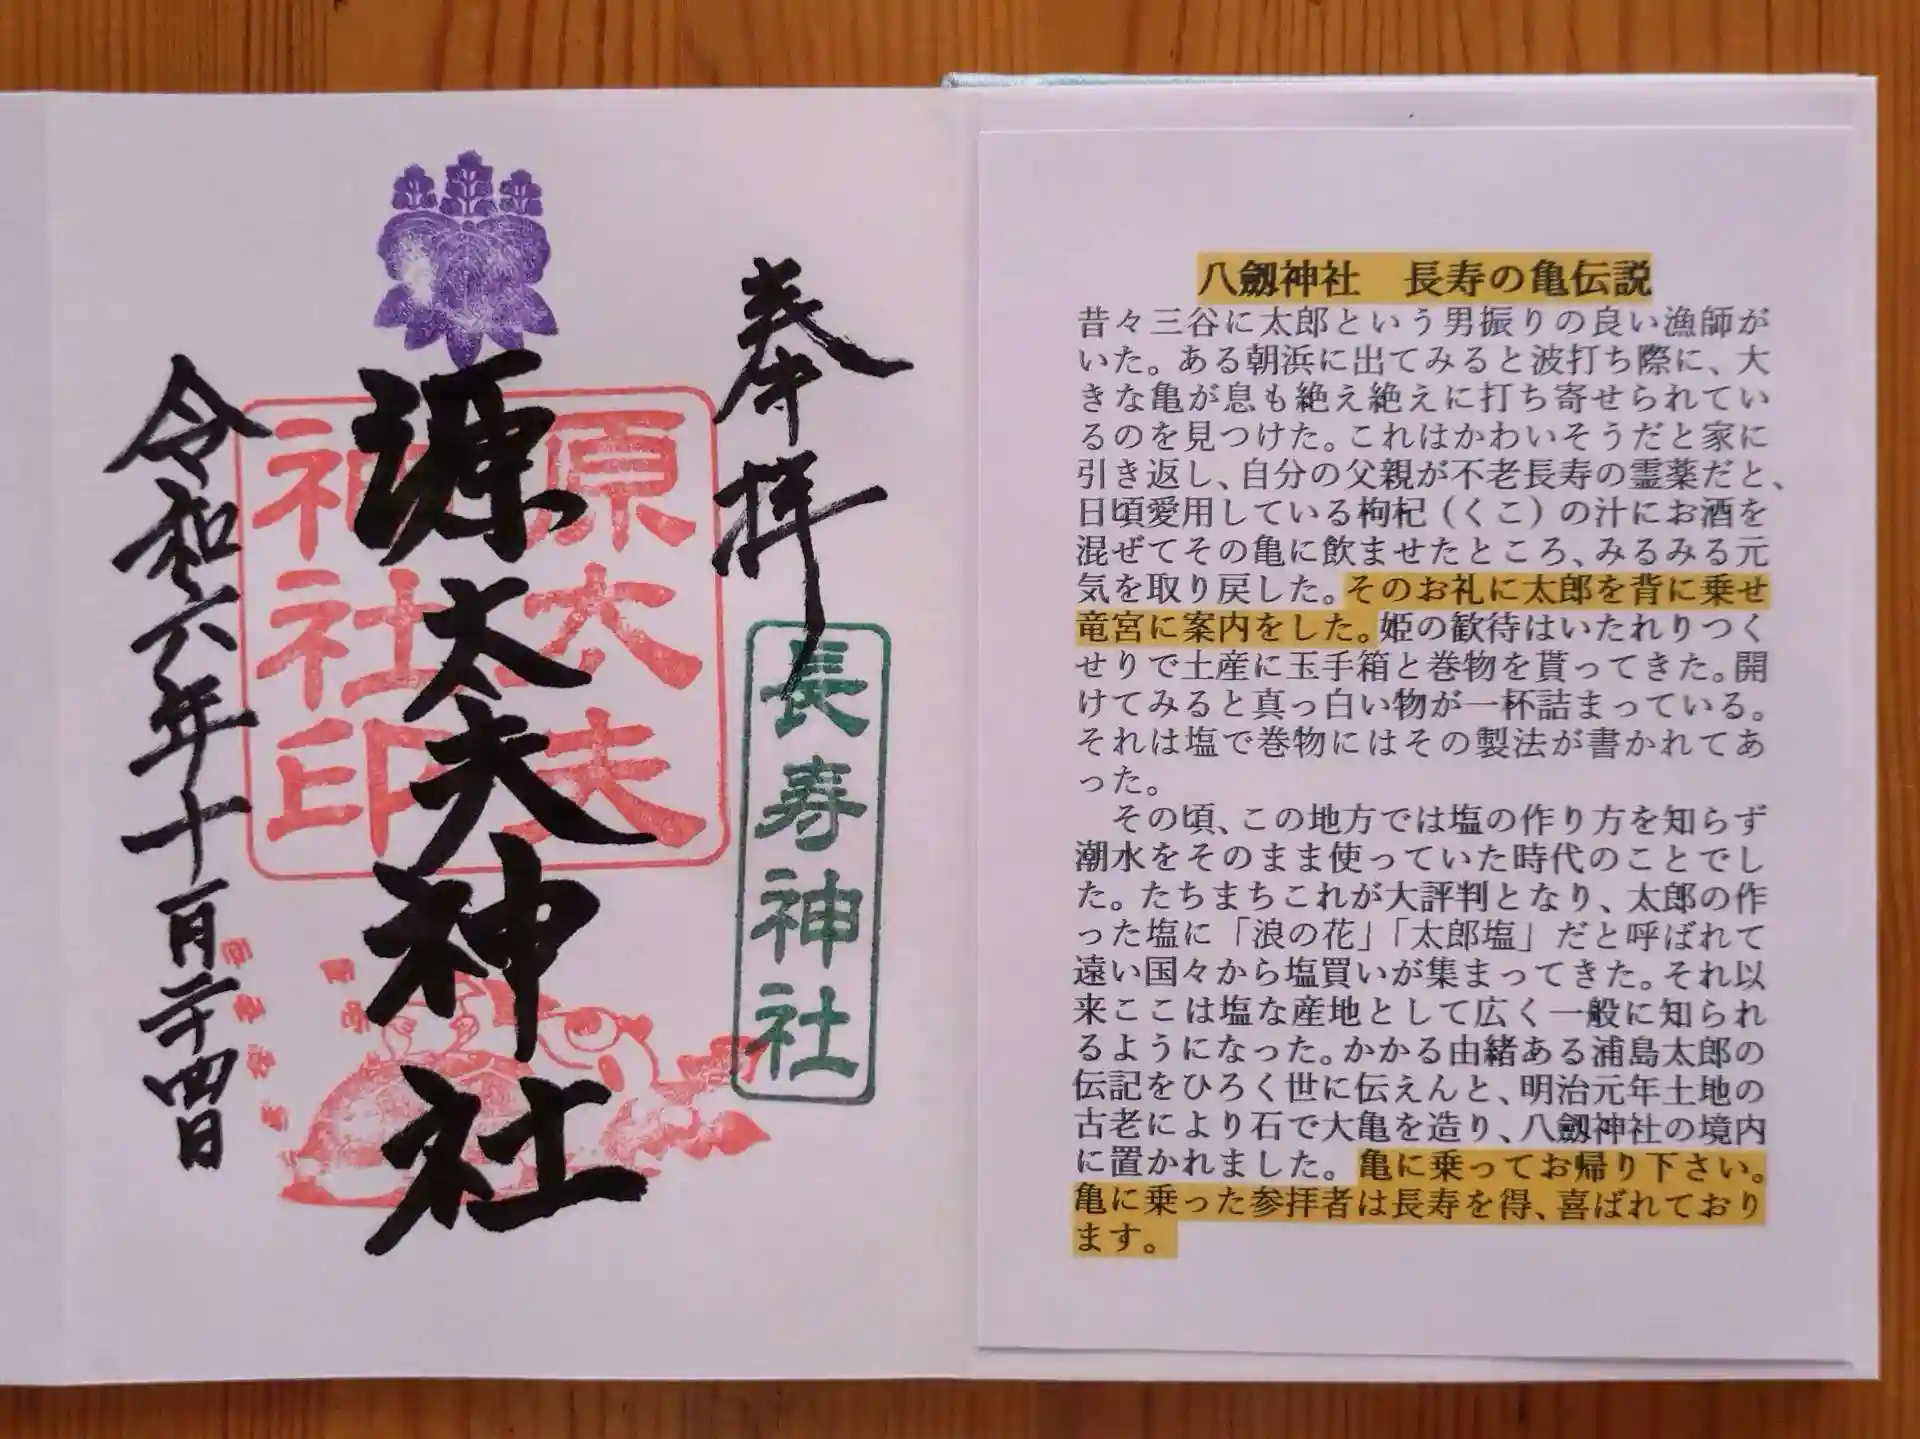 奉拝
長寿神社
源太夫神社
原大夫
神社印
令和六年十一月二十四日
八劔神社　長寿の亀伝説
昔々三谷に太郎という男振りの良い漁師が
いた。ある朝浜に出てみると波打ち際に、大
きな亀が息も絶え絶えに打ち寄せられてい
るのを見つけた。これはかわいそうだと家に
引き返し、自分の父親が不老長寿の霊薬だと、
日頃愛用している枸杞（くこ）の汁にお酒を
混ぜてその亀に飲ませたところ、みるみる元
気を取り戻した。そのお礼に太郎を背に乗せ
竜宮に案内をした。姫の歓待はいたれりつく
せりで土産に玉手箱と巻物を貰ってきた。開
けてみると真っ白い物が一杯詰まっている。
それは塩で巻物にはその製法が書かれてあ
った。
　その頃、この地方では塩の作り方を知らず
潮水をそのまま使っていた時代のことでし
た。たちまちこれが大評判となり、太郎の作
った塩に「浪の花」「太郎塩」だと呼ばれて
遠い国々から塩買いが集まってきた。それ以
来ここは塩な産地として広く一般に知られ
るようになった。かかる由緒ある浦島太郎の
伝記をひろく世に伝えんと、明治元年土地の
古老により石で大亀を造り、八劔神社の境内
に置かれました。亀に乗ってお帰り下さい。
亀に乗った参拝者は長寿を得、喜ばれており
ます。